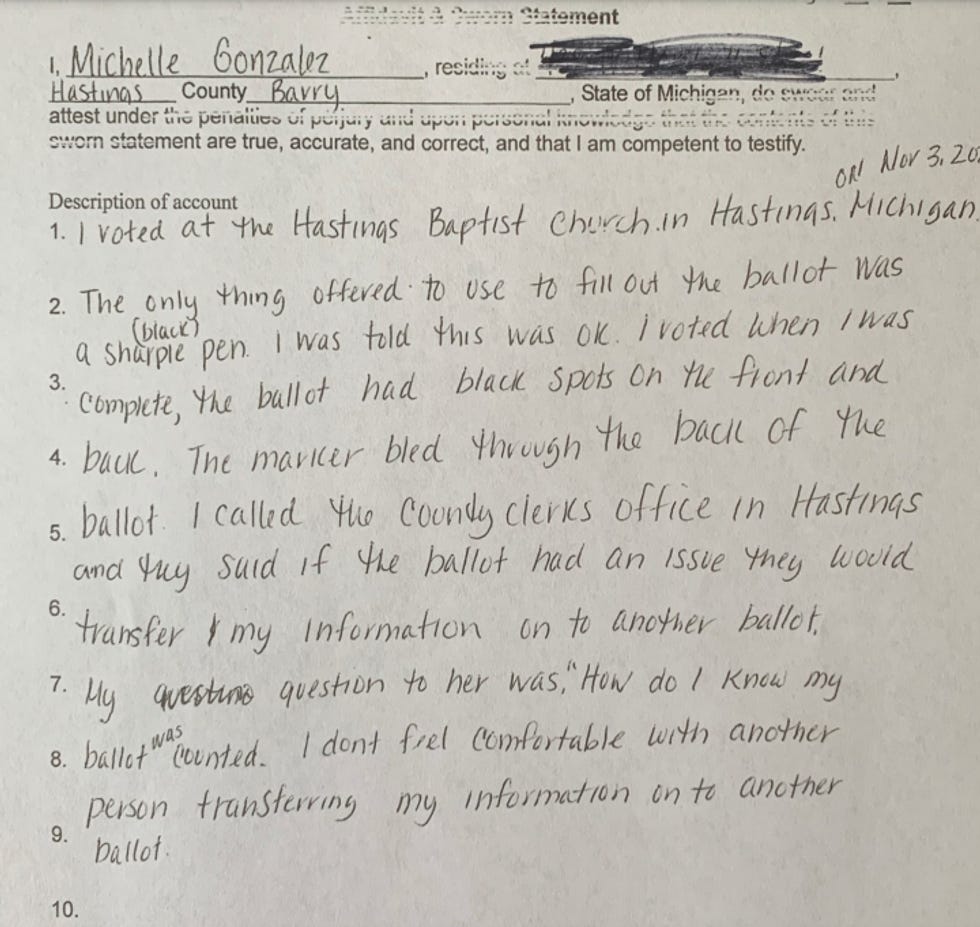 Affidavit & Sworn Statement
I, Michelle Gonzalez, residing at
Hastings County Barry, State of Michigan, do swear and
attest under the penalties of perjury and upon personal knowledge that the contents of this
sworn statement are true, accurate, and correct, and that I am competent to testify.
on Nov 3, 20
Description of account
1. I voted at the Hastings Baptist Church in Hastings, Michigan
2. The only thing offered to use to fill out the ballot was
(black)
a sharpie pen. I was told this was ok. I voted when I was
3. complete, the ballot had black spots on the front and
4. back. The marker bled through the back of the
5. ballot. I called the County clerks office in Hastings
and they said if the ballot had an issue they would
6. transfer my information on to another ballot.
7. My question to her was, "How do I know my
8. ballot" was counted. I dont feel comfortable with another
person transferring my information on to another
9. ballot.
10.